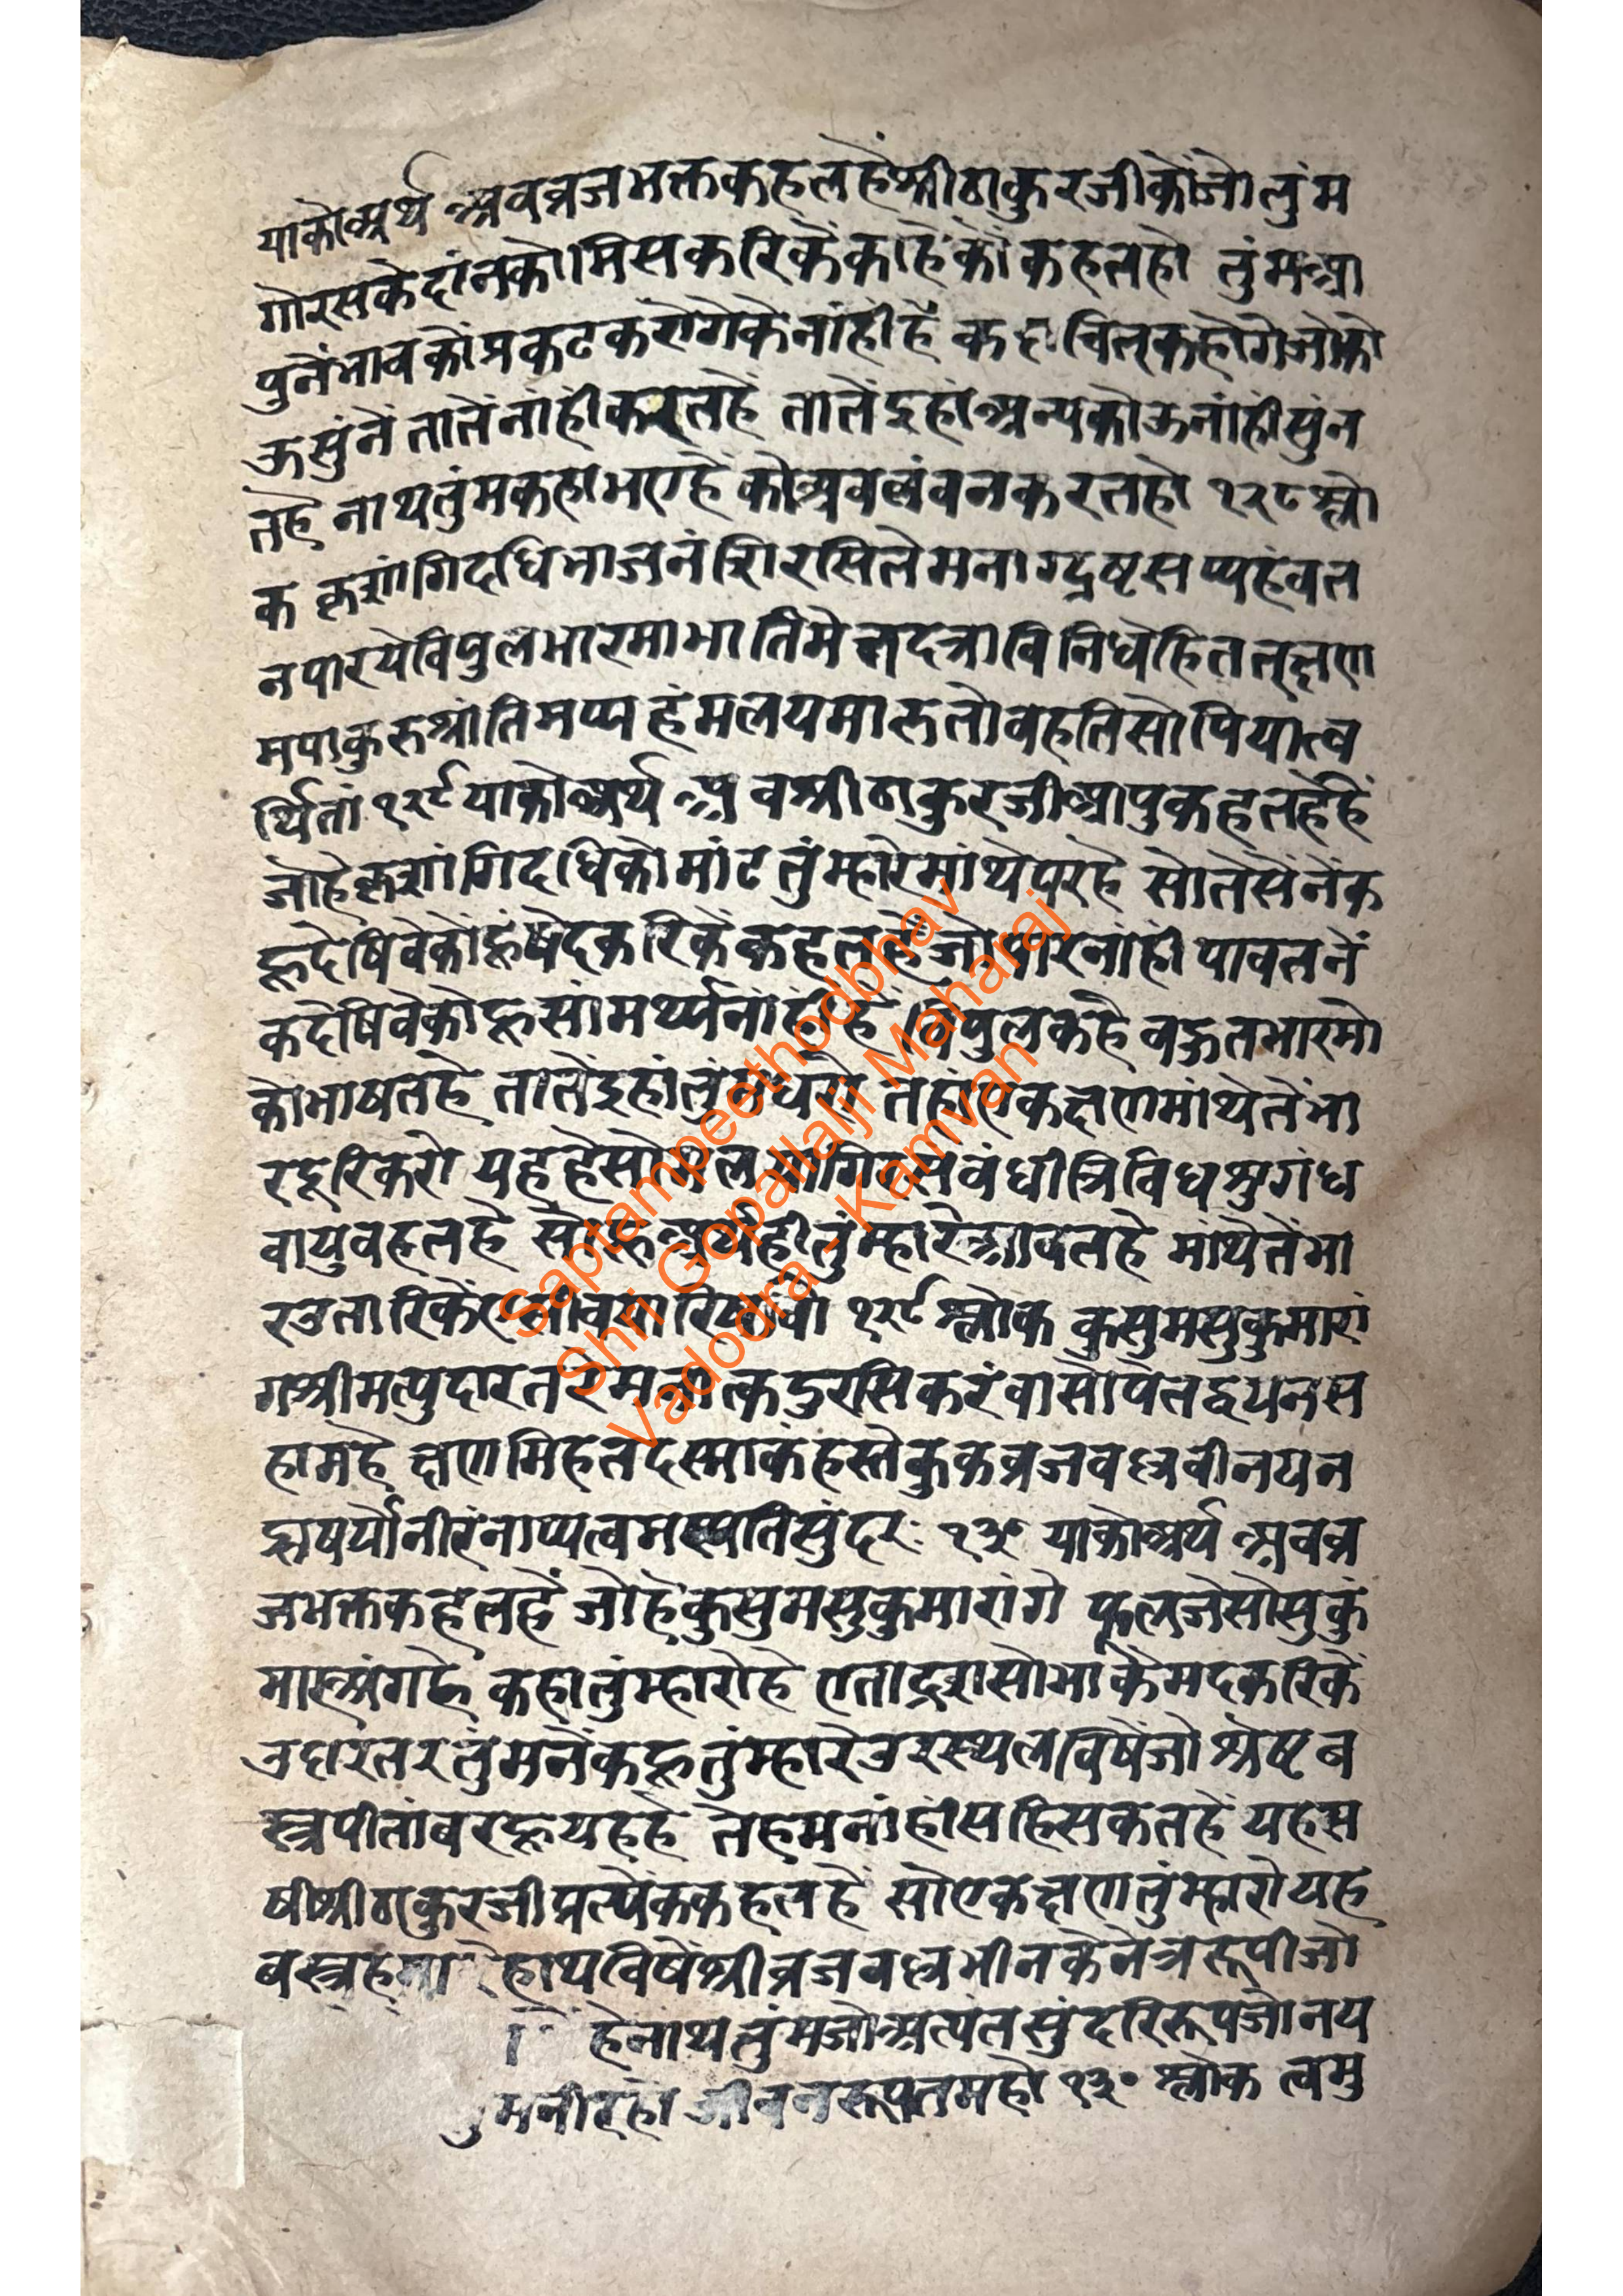 याकोअर्थ अवव्रजभक्तकहतहैंश्रीठाकुरजीकोंजोतुंम
गोरसकेदांनकोमिसकरिकेंकाहेकोंकहतहो तुंमआ
पुनेंभावकोंप्रकटकरोगेकेनांहीहैं कदाचित्कहोगेजोको
ऊसुंनें तातेंनांहीकरतहें तातेंइहांअन्यकोऊनांहींसुंन
तहैं नाथतुंमकहाभएहैं कोअवलंवनकरतहो १२८ श्लो
क कृशांगिदधिभाजनंशिरसितेमनाग्द्रष्टुसप्यहंवत
नपारयेविपुलभारमाभातिमेत्तदत्राविनिधेहितत्क्षण
मपाकुरुश्रांतिमप्यहंमलयमारुतोवहतिसोपियात्व
र्थितां १२९ याकोअर्थ अवश्रीठाकुरजीआपुकहतहेंहें
जोहेकृशांगिदधिकोमांटतुंम्हारेमांथेपरहै सोतेसेंनेंक
हूदेषिवेकोंहूंषेदकरिकेंकहतहेंजोपारनांहीं पावतनें
कदेषिवेकोहूसांमर्थ्यनांहींहै विपुलकहै वहुतभारमो
कोभाषतहे तातेंइहांतुंमधरो तहांएकक्षणमांथेतेंभा
रदूरिकरो यहहेसोमलयागिरसंवंधीत्रिविधश्रुगंध
वायुवहतहै सोहूअर्थहीतुंम्हारेआवतहे मांथेतेंभा
रउतारिकें १२९ श्लोक कुसुमसुकुमारां
गश्रीमत्पुदारतरेमनाक्तदुरसिकरंवासोपेतद्वयनस
हामहे क्षणमिहतदस्माकंहस्तेकुकव्रजवधूवीनयन
ऊषर्योनीरंनाप्यत्वमस्पतिसुंदर: १३० याकोअर्थ अवव्र
जभक्तकहतहैं जोहेकुसुमसुकुमारांग फूलजेसोसुकुं
मारअंगहै कहातुंम्हारोहे एताद्रशसोभाकेंमदकरिकें
उदारंतरतुंमनेंकहूतुंम्हारेउरस्थलविषेंजोश्रेष्टव
स्त्रपीतांबरहूयहहे तेहमनांहींसहिसकतहें यहस
षीश्रीठाकुरजीप्रत्येंककहतहें सोएकक्षणतुंम्हारोयह
वस्त्रहमा हाथविषेंश्रीव्रजवधूभीनकेनेत्ररूपीजो
हेनाथतुंमजोअत्यंतसुंदरिरूपजोनय
मनीरहो जीवनरूपतमहो १३० श्लोक त्वमु
Saptampeethodbhav
Shri Gopallalji Maharaj
Vadodra - Kamvan